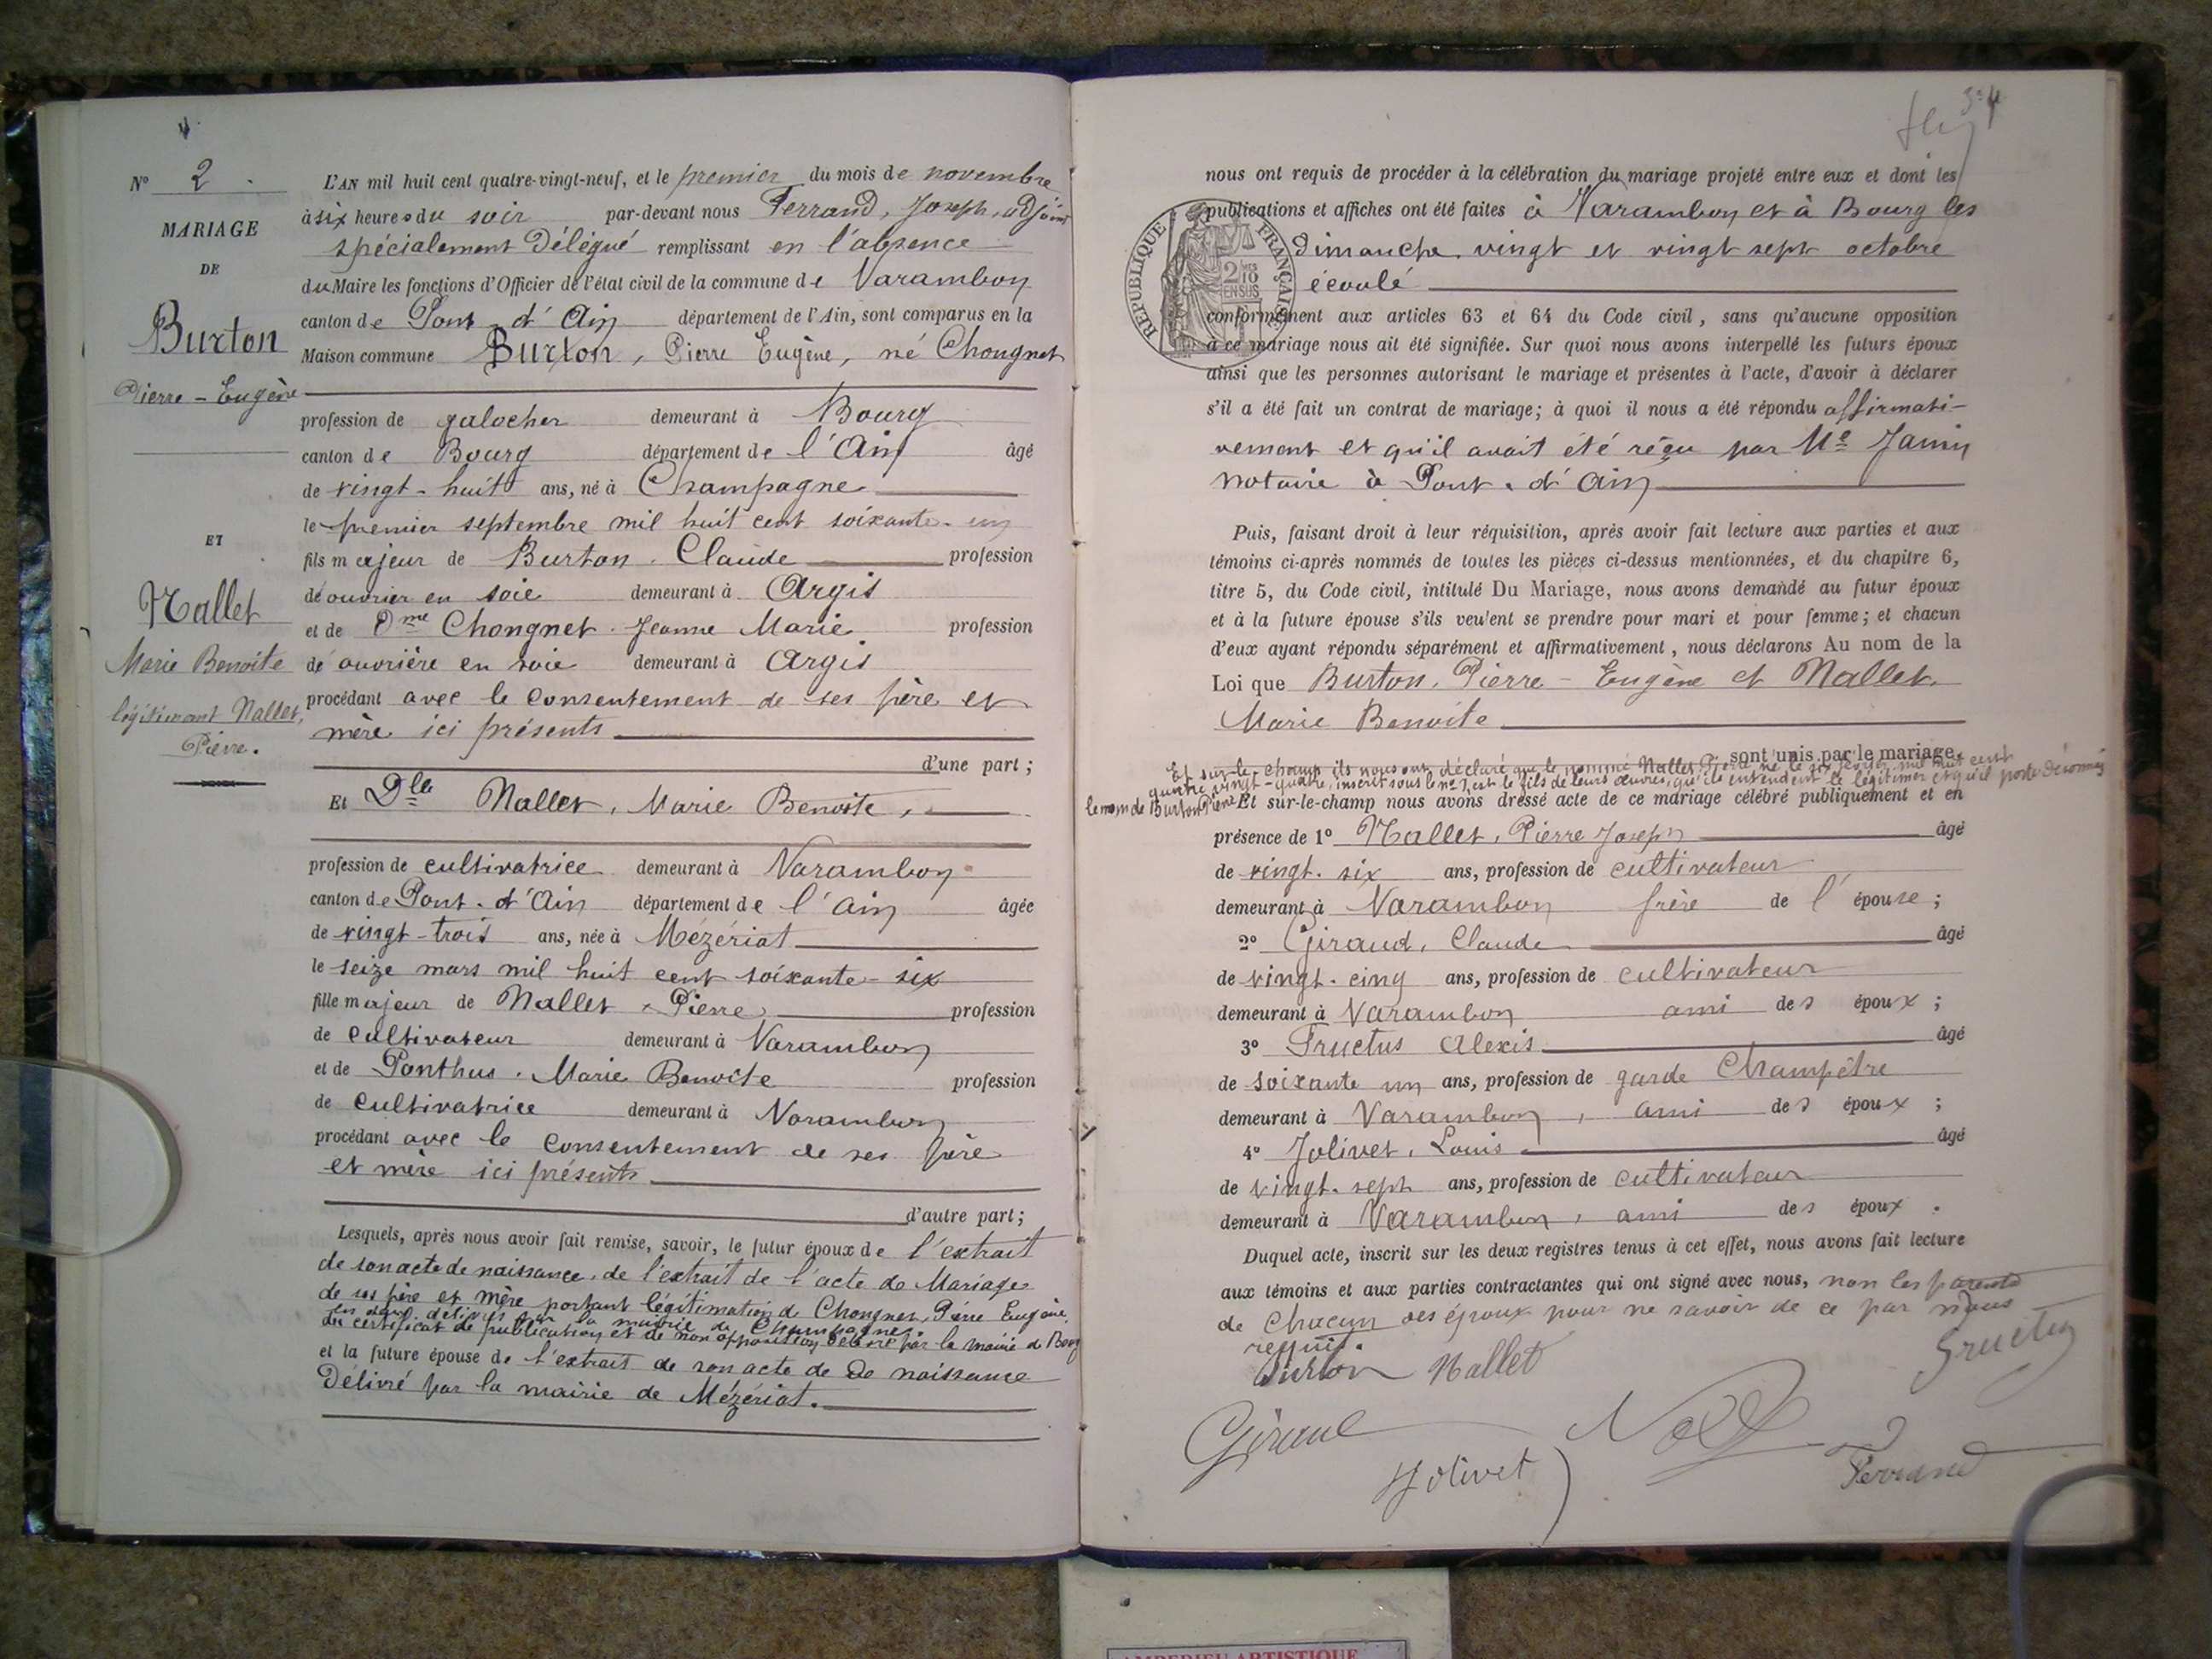 Nº 2
MARIAGE
DE
Burton
Pierre - Eugène
ET
Nallet
Marie Benoite
légitimant Nallet,
Pierre.
L'AN mil huit cent quatre-vingt-neuf, et le premier du mois de novembre
à six heures du soir par-devant nous Ferrand, Joseph, adjoint
spécialement Délégué remplissant en l'absence
du Maire les fonctions d'Officier de l'état civil de la commune de Varambon
canton de Pont d'Ain département de l'Ain, sont comparus en la
Maison commune Burton, Pierre Eugène, né Chongnet
profession de galocher demeurant à Bourg
canton de Bourg département de l'Ain âgé
de vingt-huit ans, né à Champagne
le premier septembre mil huit cent soixante-un
fils majeur de Burton. Claude profession
de ouvrier en soie demeurant à Argis
et de Dme Chongnet. Jeanne Marie profession
de ouvrière en soie demeurant à Argis
procédant avec le consentement de ses père et
mère ici présents
d'une part ;
Et Dlle Nallet, Marie Benoite,
profession de cultivatrice demeurant à Varambon
canton de Pont. d'Ain département de l'Ain âgée
de vingt-trois ans, née à Mézériat
le seize mars mil huit cent soixante-six
fille majeur de Nallet, Pierre profession
de cultivateur demeurant à Varambon
et de Ponthus. Marie Benoite profession
de cultivatrice demeurant à Varambon
procédant avec le consentement de ses père
et mère ici présents
d'autre part ;
Lesquels, après nous avoir fait remise, savoir, le futur époux de l'extrait
de son acte de naissance, de l'extrait de l'acte de Mariage
de ses père et mère portant légitimation de Chongnet, Pierre Eugène,
les deux délivrés par la mairie de Champagne.
du certificat de publication et de non opposition délivré par la mairie de Bourg
et la future épouse de l'extrait de son acte de De naissance
Délivré par la mairie de Mézériat.
nous ont requis de procéder à la célébration du mariage projeté entre eux et dont les
publications et affiches ont été faites à Varambon et à Bourg les
Dimanche vingt et vingt sept octobre
écoulé
RÉPUBLIQUE FRANÇAISE
2/10 EN SUS
conformément aux articles 63 et 64 du Code civil, sans qu'aucune opposition
à ce mariage nous ait été signifiée. Sur quoi nous avons interpellé les futurs époux
ainsi que les personnes autorisant le mariage et présentes à l'acte, d'avoir à déclarer
s'il a été fait un contrat de mariage; à quoi il nous a été répondu affirmati-
vement et qu'il avait été reçu par Me Jamin
notaire à Pont. d'Ain
Puis, faisant droit à leur réquisition, après avoir fait lecture aux parties et aux
témoins ci-après nommés de toutes les pièces ci-dessus mentionnées, et du chapitre 6,
titre 5, du Code civil, intitulé Du Mariage, nous avons demandé au futur époux
et à la future épouse s'ils veulent se prendre pour mari et pour femme ; et chacun
d'eux ayant répondu séparément et affirmativement, nous déclarons Au nom de la
Loi que Burton. Pierre - Eugène et Nallet.
Marie Benoite
sont unis par le mariage.
Et sur-le-champ ils nous ont déclaré que le nommé Nallet Pierre né le six février mil huit cent
quatre vingt-quatre, inscrit sous le nº 1, est le fils de leurs œuvres, qu'ils entendent le légitimer et qu'il porte désormais
le nom de Burton Pierre
Et sur-le-champ nous avons dressé acte de ce mariage célébré publiquement et en
présence de 1º Nallet, Pierre Joseph âgé
de vingt. six ans, profession de cultivateur
demeurant à Varambon frère de l'épouse ;
2º Giraud, Claude âgé
de vingt. cinq ans, profession de cultivateur
demeurant à Varambon ami des époux ;
3º Fructus Alexis âgé
de soixante un ans, profession de garde Champêtre
demeurant à Varambon, ami des époux ;
4º Jolivet, Louis âgé
de vingt. sept ans, profession de cultivateur
demeurant à Varambon, ami des époux.
Duquel acte, inscrit sur les deux registres tenus à cet effet, nous avons fait lecture
aux témoins et aux parties contractantes qui ont signé avec nous, non les parents
de Chacun des époux pour ne savoir de ce par nous
requis.
Burton Nallet Fructus
Giraud
Jolivet
Ferrand
AMBERIEU ARTISTIQUE